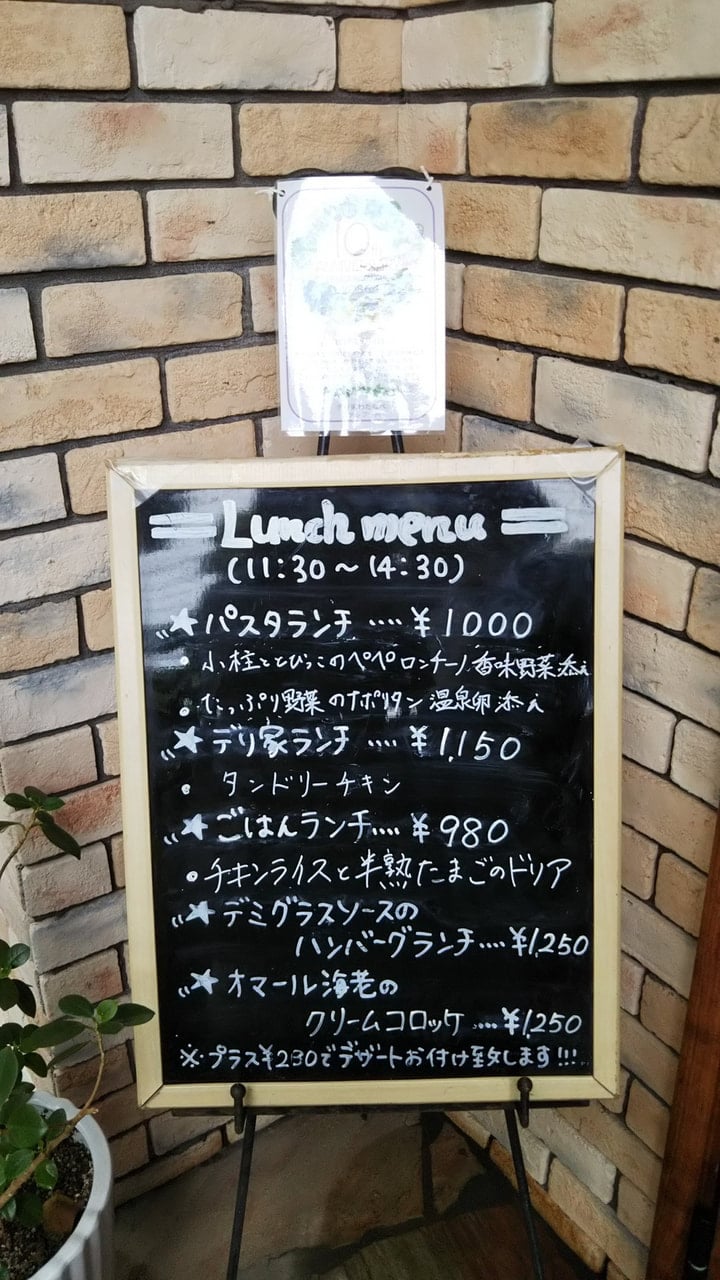 10
Lunch menu
(11:30～14:30)
★パスタランチ‥‥¥1000
・小柱ととびっこのペペロンチーノ香味野菜添え
・たっぷり野菜のナポリタン温泉卵添え
★デリ家ランチ‥‥¥1,150
・タンドリーチキン
★ごはんランチ‥‥¥980
・チキンライスと半熟たまごのドリア
★デミグラスソースの
ハンバーグランチ‥‥¥1,250
★オマール海老の
クリームコロッケ‥‥¥1,250
※プラス¥230でデザートお付け致します!!!